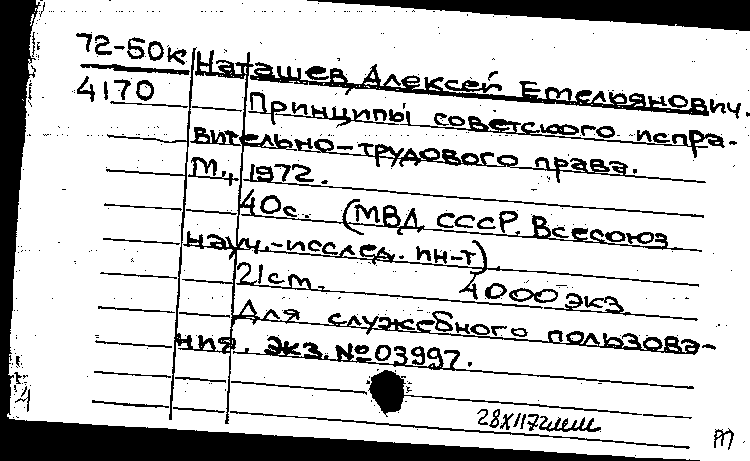 72-50к Наташев, Алексей Емельянович.
4170 Принципы советского испра-
вительно-трудового права.
М., 1972.
40с. (МВД СССР. Всесоюз.
науч.-исслед. ин-т).
21см. 4000 экз.
Для служебного пользова-
ния. экз. №03997.